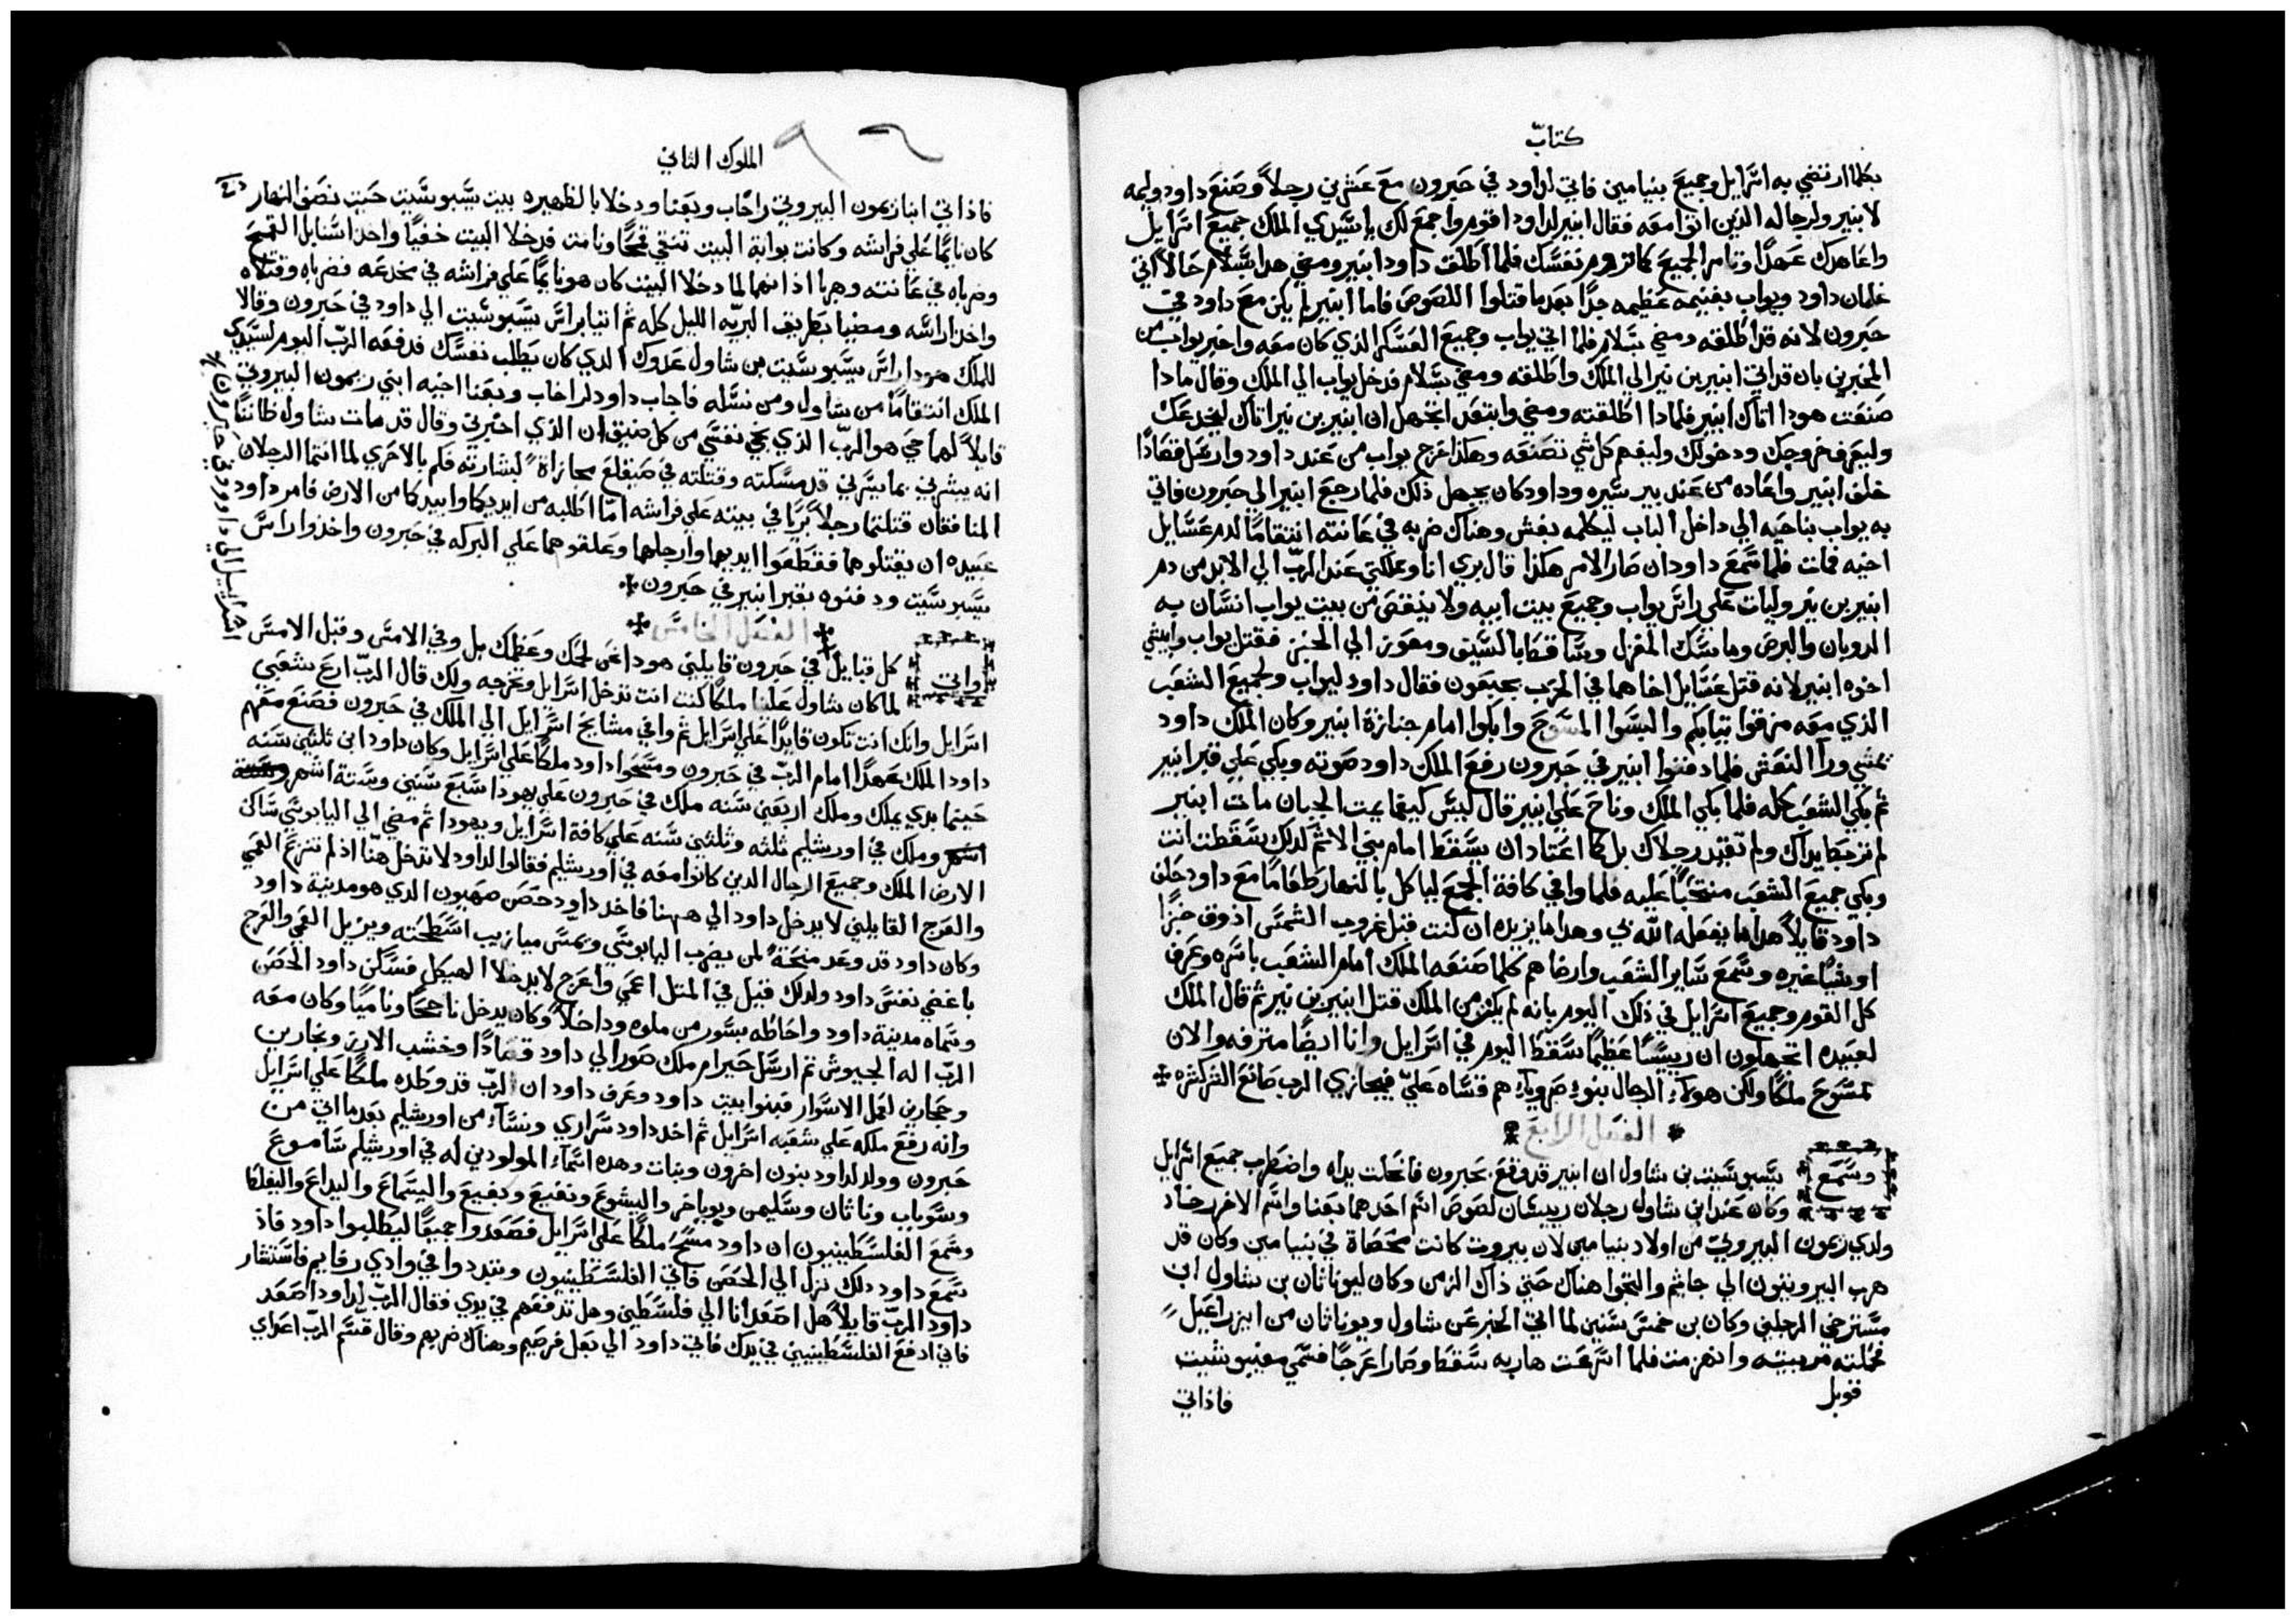 كتاب
بكلما ارتضي به اسرايل وجميع بنيامين فاتي لداود في حبرون مع عشرين رجلاً وصنع داود وليمه
لابنير ولرجاله الذين اتوا معه فقال ابنير لداود اقوم واجمع لك يا سيدي الملك جميع اسرايل
واعاهدك عهداً وتامر الجميع كما تروم نفسك فلما اطلق داود ابنير ومضي هدا بسلام حالاً اتي
غلمان داود ويواب بغنيمه عظيمه جداً بعد ما قتلوا اللصوص فاما ابنير لم يكن مع داود في
حبرون لانه قد اطلقه ومضي بسلام فلما اتي يواب وجميع العسكر الذي كان معه واخبر يواب من
المخبرين بان قد اتي ابنير بن نير الي الملك واطلقه ومضي بسلام فدخل يواب الي الملك وقال مادا
صنعت هودا اتاك ابنير فلمادا اطلقته ومضي وابتعد اتجهل ان ابنير بن نير اتاك ليخدعك
وليعرف خروجك ودخولك وليفهم كل شي تصنعه وهكذا خرج يواب من عند داود وارسل قصاداً
خلف ابنير واعاده من عند بير سيره وداود كان يجهل ذلك فلما رجع ابنير الي حبرون فاتي
به يواب بناحيه الي داخل الباب ليكلمه بغش وهناك ضربه في عانته انتقاماً لدم عسايل
اخيه فمات فلما سمع داود ان صار الامر هكذا قال بري انا ومملكتي عند الرب الي الابد من دم
ابنير بن نير وليات علي راس يواب وجميع بيت ابيه ولا ينقص من بيت يواب انسان به
الدوبان والبرص وماسك المغزل وساقط بالسيف ومعوز الي الخبز فقتل يواب وابيشي
اخوه ابنير لانه قتل عسايل اخاهما في الحرب بجبعون فقال داود ليواب ولجميع الشعب
الذي معه مزقوا تيابكم والبسوا المسوح وابكوا امام جنازة ابنير وكان الملك داود
يمشي ورآ النعش فلما دفنوا ابنير في حبرون رفع الملك داود صوته وبكي علي قبر ابنير
ثم بكي الشعب كله فلما بكي الملك وناح علي ابنير قال ليس كيفما يمت الجبان مات ابنير
لم تربط يداك ولم تقيد رجلاك بل كما اعتاد ان يسقط امام بني الاثم كدلك سقطت انت
وبكي جميع الشعب منتحباً عليه فلما وافي كافة الجمع لياكل بالنهار طعاماً مع داود حلف
داود قايلاً هدا ما يفعله الله بي وهدا ما يزيده ان كنت قبل غروب الشمس اذوق خبزاً
او شياً غيره وسمع ساير الشعب وارضاهم كلما صنعه الملك امام الشعب باسره وعرف
كل القوم وجميع اسرايل في ذلك اليوم بانه لم يكن من الملك قتل ابنير بن نير ثم قال الملك
لعبيده اتجهلون ان رييساً عظيماً سقط اليوم في اسرايل وانا ايضاً مترفه والان
لمسوح ملكاً ولكن هولآء الرجال بنوا صرويا هم قساه علي فيجازي الرب صانع الشر كشره
الفصل الرابع
وسمع يسبوسيت بن شاول ان ابنير قد وقع بحبرون فانحلت يداه واضطرب جميع اسرايل
وكان عند ابن شاول رجلان رييسان لصوص اسم احدهما بعنا واسم الاخر رخاب
ولدي ريمون البيروتي من اولاد بنيامين لان بيروت كانت محصاة في بنيامين وكان قد
هرب البيروتيون الي جاثيم والتجوا هناك حتي ذاك الزمن وكان ليوناثان بن شاول ابن
مسترخي الرجلين وكان بن خمس سنين لما اتي الخبر عن شاول ويوناثان من ايزراعيل
فحملته مربيته وانهزمت فلما اسرعت هاربه سقط وصار اعرجاً فسمي مفيبوشيت
قوبل
فاذاتي
الملوك الثاني
فاذاتي ابنا ريمون البيروتي راخاب وبعنا ودخلا بالظهيره بيت يسبوسيت حيت نصف النهار
كان نايماً علي فراشه وكانت بوابة البيت تنقي قمحاً ونامت فدخلا البيت خفياً واخدا سنابل القمح
وضرباه في عانته وهربا اذا انهما لما دخلا البيت كان هو نايماً علي فراشه في مخدعه فضرباه وقتلاه
واخدا راسه ومضيا بطريق البريه الليل كله ثم اتيا براس يسبوسيت الي داود في حبرون وقالا
للملك هودا راس يسبوسيت بن شاول عدوك الدي كان يطلب نفسك فدفعه الرب اليوم لسيدي
الملك انتقاماً من شاول ومن نسله فاجاب داود لراخاب وبعنا اخيه ابني ريمون البيروتي
قايلاً لهما حي هو الرب الذي نجي نفسي من كل ضيق ان الذي اخبرني وقال قد مات شاول ظاناً
انه يبشرني بما يسرني قد مسكته وقتلته في صيقلغ مجازاة لبشارته فكم بالاحري لما انتما الرجلان
المنافقان قتلتما رجلاً برياً في بيته علي فراشه اما اطلبه من ايديكما وابيدكما من الارض فامر داود
عبيده ان يقتلوهما فقطعوا ايديهما وارجلهما وعلقوهما علي البركه في حبرون واخذوا راس
يسبوسيت ودفنوه بقبر ابنير في حبرون
الفصل الخامس
واتي كل قبايل في حبرون قايلين هودا نحن لحمك وعظمك بل وفي الامس وقبل الامس
اسرايل الي داود في حبرون
لما كان شاول علينا ملكاً كنت انت تدخل اسرايل وتخرجه ولك قال الرب ارع شعبي
اسرايل وانك انت تكون قايداً علي اسرايل ثم وافي مشايخ اسرايل الي الملك في حبرون فصنع معهم
داود الملك عهداً امام الرب في حبرون ومسحوا داود ملكاً علي اسرايل وكان داود ابن ثلثين سنه
حينما بدي يملك وملك اربعين سنه ملك في حبرون علي يهودا سبع سنين وستة اشهر
وملك في اورشليم ثلثه وثلثين سنه علي كافة اسرايل ويهودا ثم مضي الي اليابوسي ساكن
الارض الملك وجميع الرجال الدين كانوا معه في اورشليم فقالوا لداود لا تدخل هنا اذ لم تنزع العمي
والعرج القايلين لا يدخل داود الي ههنا فاخد داود حصن صهيون الدي هو مدينة داود
وكان داود قد وعد منحة لمن يضرب اليابوسي ويمس ميازيب اسطحته ويزيل العمي والعرج
باغضي نفس داود ولدلك قيل في المتل اعمي واعرج لا يدخلا الهيكل فسكن داود الحصن
وسماه مدينة داود واحاطه بسور من ملوه وداخلاً وكان يدخل ناجحاً وناميا وكان معه
الرب اله الجيوش ثم ارسل حيرام ملك صور الي داود قصاداً وخشب الارز ونجارين
وحجارين لعمل الاسوار فبنوا بيت داود وعرف داود ان الرب قد وطده ملكاً علي اسرايل
وانه رفع ملكه علي شعبه اسرايل ثم اخد داود سراري ونسآء من اورشليم بعد ما اتي من
حبرون وولد لداود بنون اخرون وبنات وهده اسمآء المولودين له في اورشليم ساموع
وسوباب وناثان وسليمن ويوباخر واليشوع ونفيع ويفيع واليسماع واليداع واليفلط
وسمع الفلسطينيون ان داود مسح ملكاً علي اسرايل فصعدوا جميعاً ليطلبوا داود فاذ
سمع داود دلك نزل الي الحصن فاتي الفلسطينيون وتبددوا في وادي رفايم فاستشار
داود الرب قايلاً هل اصعد انا الي فلسطين وهل تدفعهم في يدي فقال الرب لداود اصعد
فاني ادفع الفلسطينيين في يدك فاتي داود الي بعل فرصيم وهناك ضربهم وقال قسم الرب اعداي